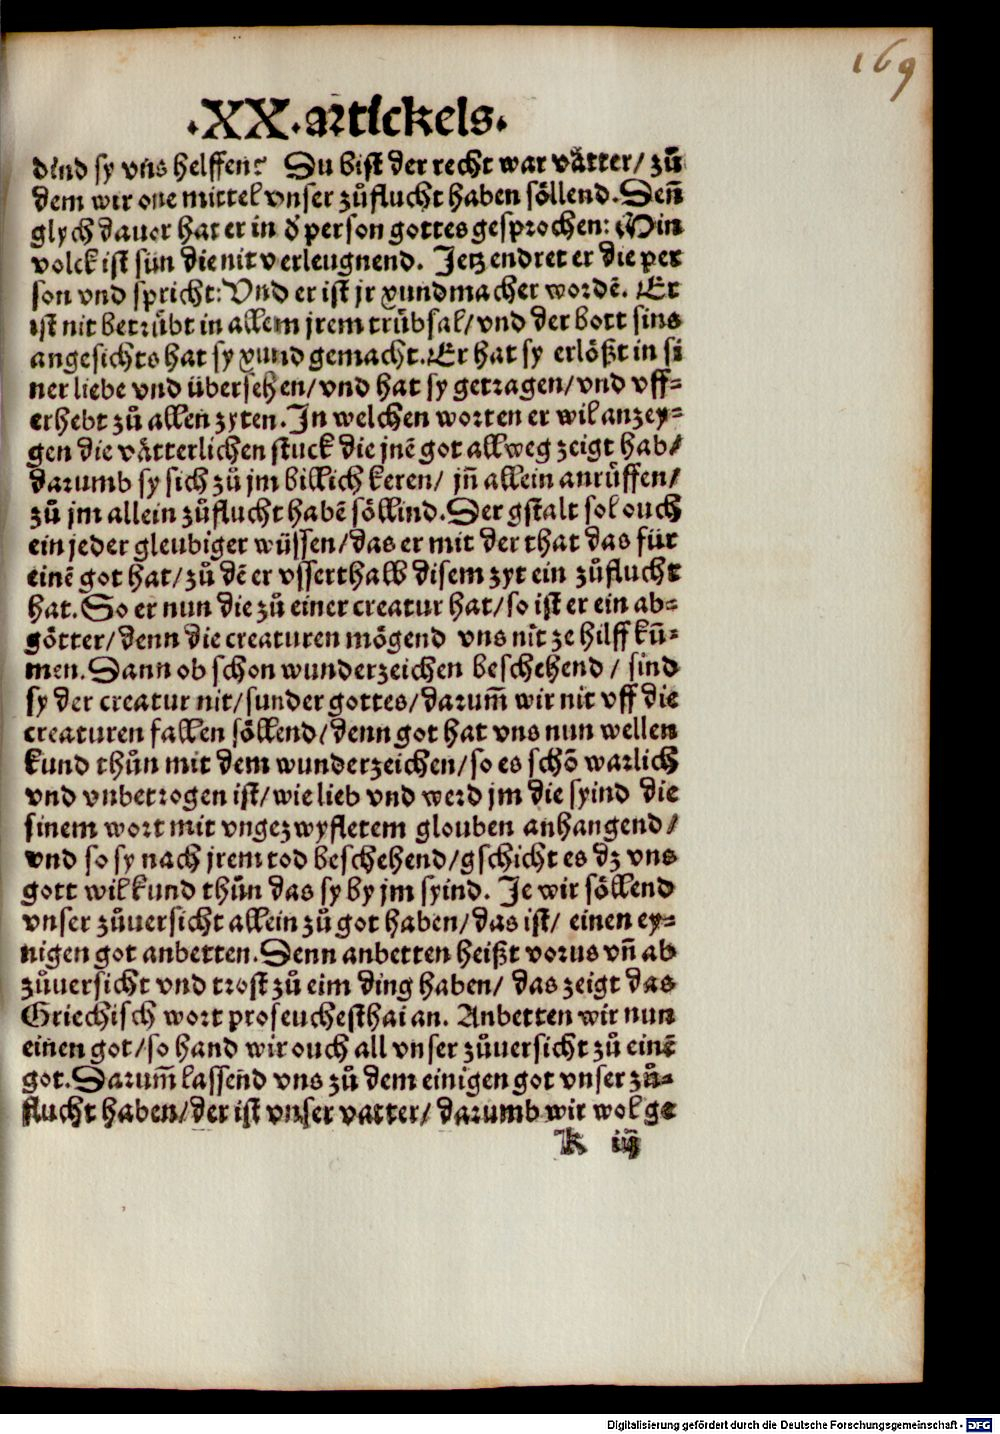 169
·XX·artickels·
dind sy vns helffen? Du bist der recht war vätter/ zů
dem wir one mittel vnser zůflucht haben söllend. Deñ
glych dauor hat er in d' person gottes gesprochen: Min
volck ist sün die nit verleugnend. Jetz endret er die per
son vnd spricht: Vnd er ist jr xundmacher wordẽ. Er
ist nit betrübt in allem jrem trübsal/ vnd der bott sins
angesichts hat sy xund gemacht. Er hat sy erlößt in si
ner liebe vnd übersehen/ vnd hat sy getragen/ vnd vff=
erhebt zů allen zyten. In welchen worten er wil anzey=
gen die vätterlichen stuck die jnẽ got allweg zeigt hab/
darumb sy sich zů jm billich keren/ jñ allein anrüffen/
zů jm allein zůflucht habẽ söllind. Der gstalt sol ouch
ein jeder gleubiger wüssen/ das er mit der that das für
einẽ got hat/ zů dẽ er vsserthalb disem zyt ein zůflucht
hat. So er nun die zů einer creatur hat/ so ist er ein ab=
götter/ denn die creaturen mögend vns nit ze hilff kũ=
men. Dann ob schon wunderzeichen beschehend/ sind
sy der creatur nit/ sunder gottes/ darum̃ wir nit vff die
creaturen fallen söllend/ denn got hat vns nun wellen
kund thůn mit dem wunderzeichen/ so es schõ warlich
vnd vnbetrogen ist/ wie lieb vnd werd jm die syind die
sinem wort mit vngezwyfletem glouben anhangend/
vnd so sy nach jrem tod beschehend/ gschicht es dz vns
gott wil kund thůn das sy by jm syind. Je wir söllend
vnser zůuersicht allein zů got haben/ das ist/ einen ey=
nigen got anbetten. Denn anbetten heißt vorus vñ ab
zůuersicht vnd trost zů eim ding haben/ das zeigt das
Griechisch wort proseuchesthai an. Anbetten wir nun
einen got/ so hand wir ouch all vnser zůuersicht zů einẽ
got. Darum̃ lassend vns zů dem einigen got vnser zů=
flucht haben/ der ist vnser vatter/ darumb wir wol ge
K iij
Digitalisierung gefördert durch die Deutsche Forschungsgemeinschaft - DFG